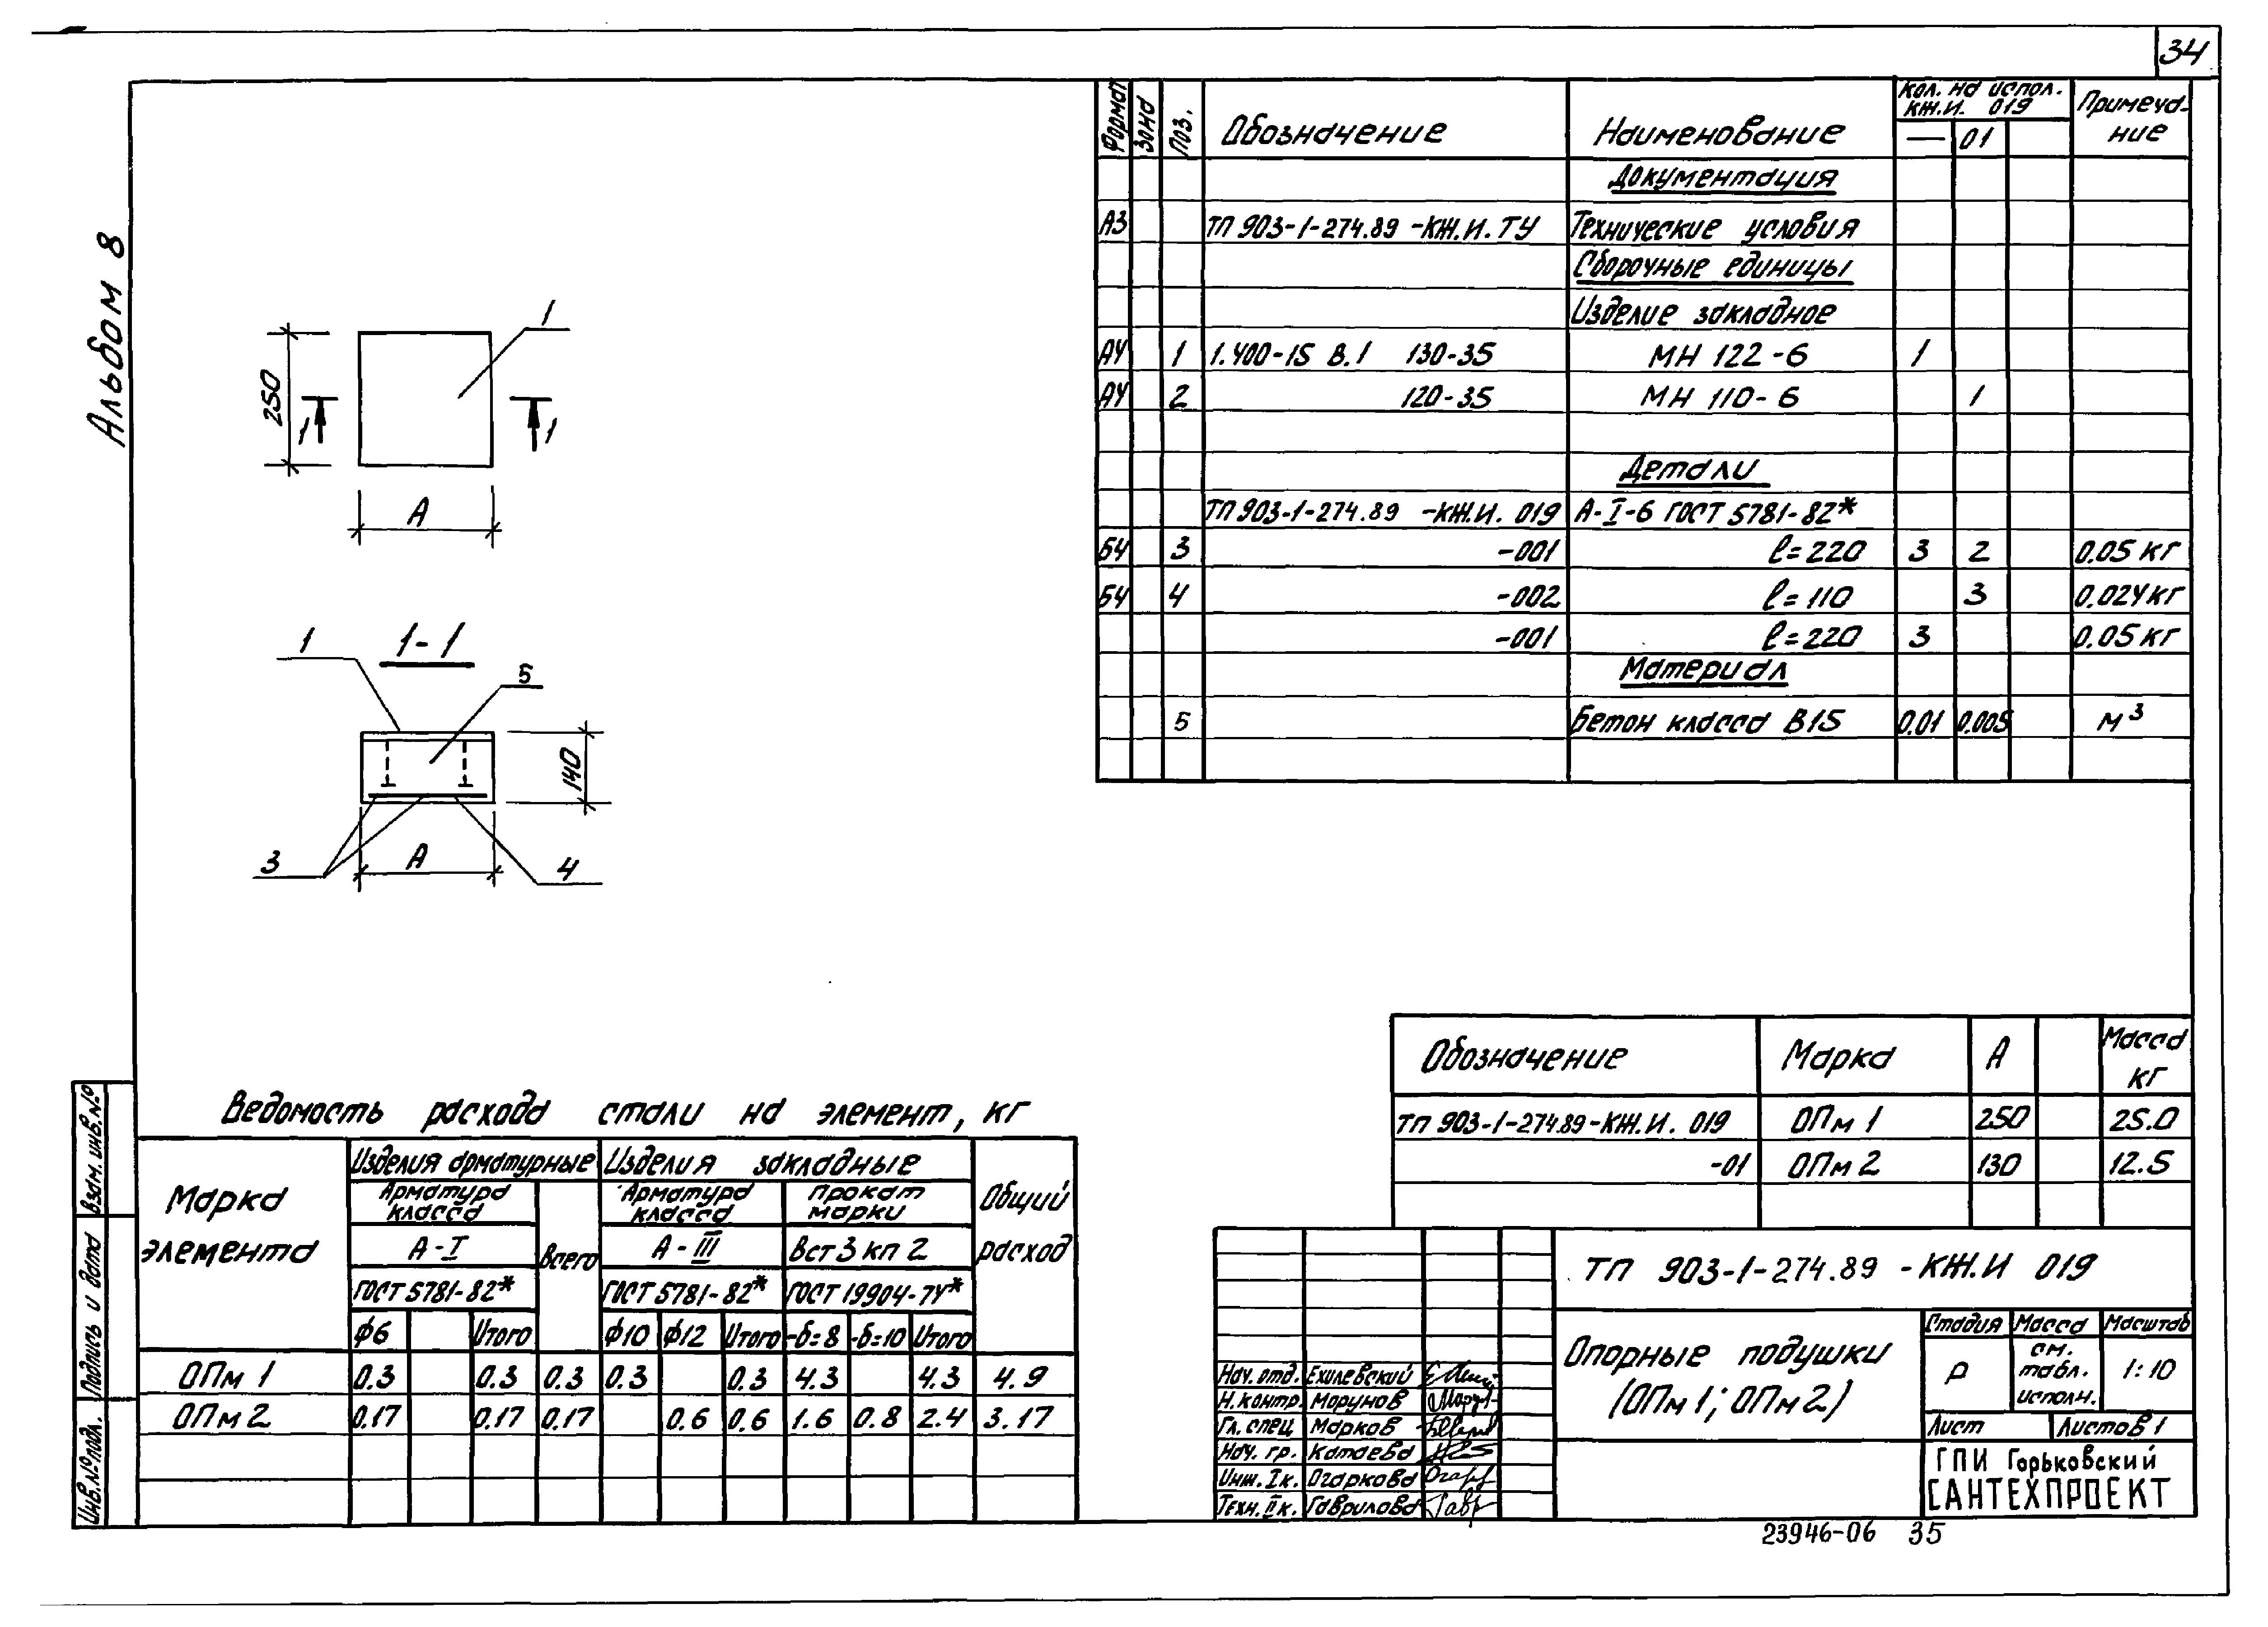 34
Альбом 8
Формат Зона Поз. Обозначение Наименование Кол. на испол. КЖ.И. 019 Примеча-ние
— 01
Документация
А3 ТП 903-1-274.89 -КЖ.И.ТУ Технические условия
Сборочные единицы
Изделие закладное
А4 1 1.400-15 В.1 130-35 МН 122-6 1
А4 2 120-35 МН 110-6 1
Детали
ТП 903-1-274.89 -КЖ.И. 019 А-I-6 ГОСТ 5781-82*
БЧ 3 -001 ℓ=220 3 2 0.05 кг
БЧ 4 -002 ℓ=110 3 0.024 кг
-001 ℓ=220 3 0.05 кг
Материал
5 Бетон класса В15 0.01 0.005 м³
1
250
1 1
А
1-1
1
5
140
3 А 4
Обозначение Марка А Масса кг
ТП 903-1-274.89-КЖ.И. 019 ОПм 1 250 25.0
-01 ОПм 2 130 12.5
Ведомость расхода стали на элемент, кг
Марка элемента Изделия арматурные Изделия закладные Общий расход
Арматура класса Всего Арматура класса Прокат марки
А-I А-III Вст 3 кп 2
ГОСТ 5781-82* ГОСТ 5781-82* ГОСТ 19904-74*
ф6 Итого ф10 ф12 Итого -δ=8 -δ=10 Итого
ОПм 1 0.3 0.3 0.3 0.3 0.3 4.3 4.3 4.9
ОПм 2 0.17 0.17 0.17 0.6 0.6 1.6 0.8 2.4 3.17
Взам. инв. №
Подпись и дата
Инв. № подл.
ТП 903-1-274.89 -КЖ.И 019
Опорные подушки
(ОПм 1; ОПм 2)
Стадия Масса Масштаб
Р см. табл. исполн. 1:10
Лист Листов 1
ГПИ Горьковский
САНТЕХПРОЕКТ
Нач. отд. Ехилевский
Н. контр. Морунов
Гл. спец Марков
Нач. гр. Катаева
Инж. Iк. Огаркова
Техн. IIк. Гаврилова
23946-06 35